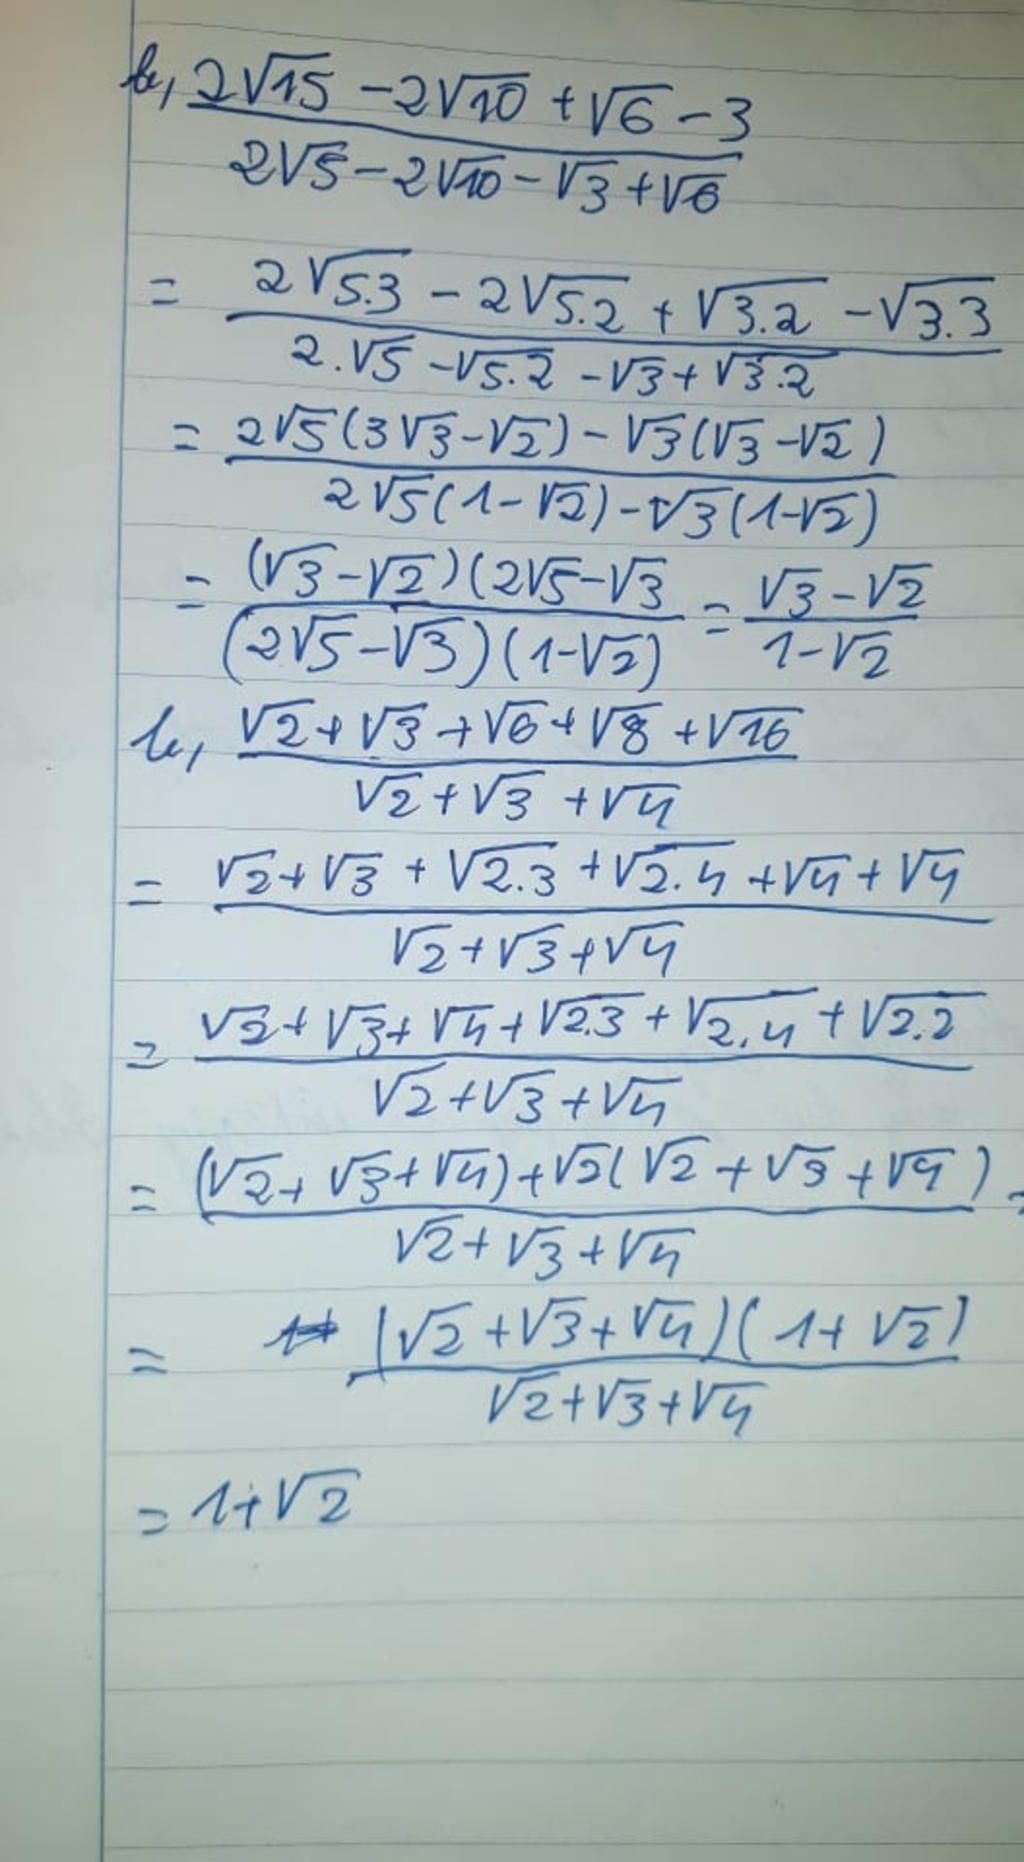 b, (2√15 - 2√10 + √6 - 3)/(2√5 - 2√10 - √3 + √6)
= (2√5.3 - 2√5.2 + √3.2 - √3.3)/(2.√5 - √5.2 - √3 + √3.2)
= (2√5(3√3-√2) - √3(√3-√2))/(2√5(1-√2) - √3(1-√2))
= ((√3-√2)(2√5-√3)/((2√5-√3)(1-√2)) = (√3-√2)/(1-√2)
b, (√2+√3+√6+√8+√16)/(√2+√3+√4)
= (√2+√3+√2.3+√2.4+√4+√4)/(√2+√3+√4)
= (√2+√3+√4+√2.3+√2.4+√2.2)/(√2+√3+√4)
= ((√2+√3+√4)+√2(√2+√3+√4))/(√2+√3+√4)
= ((√2+√3+√4)(1+√2))/(√2+√3+√4)
= 1+√2